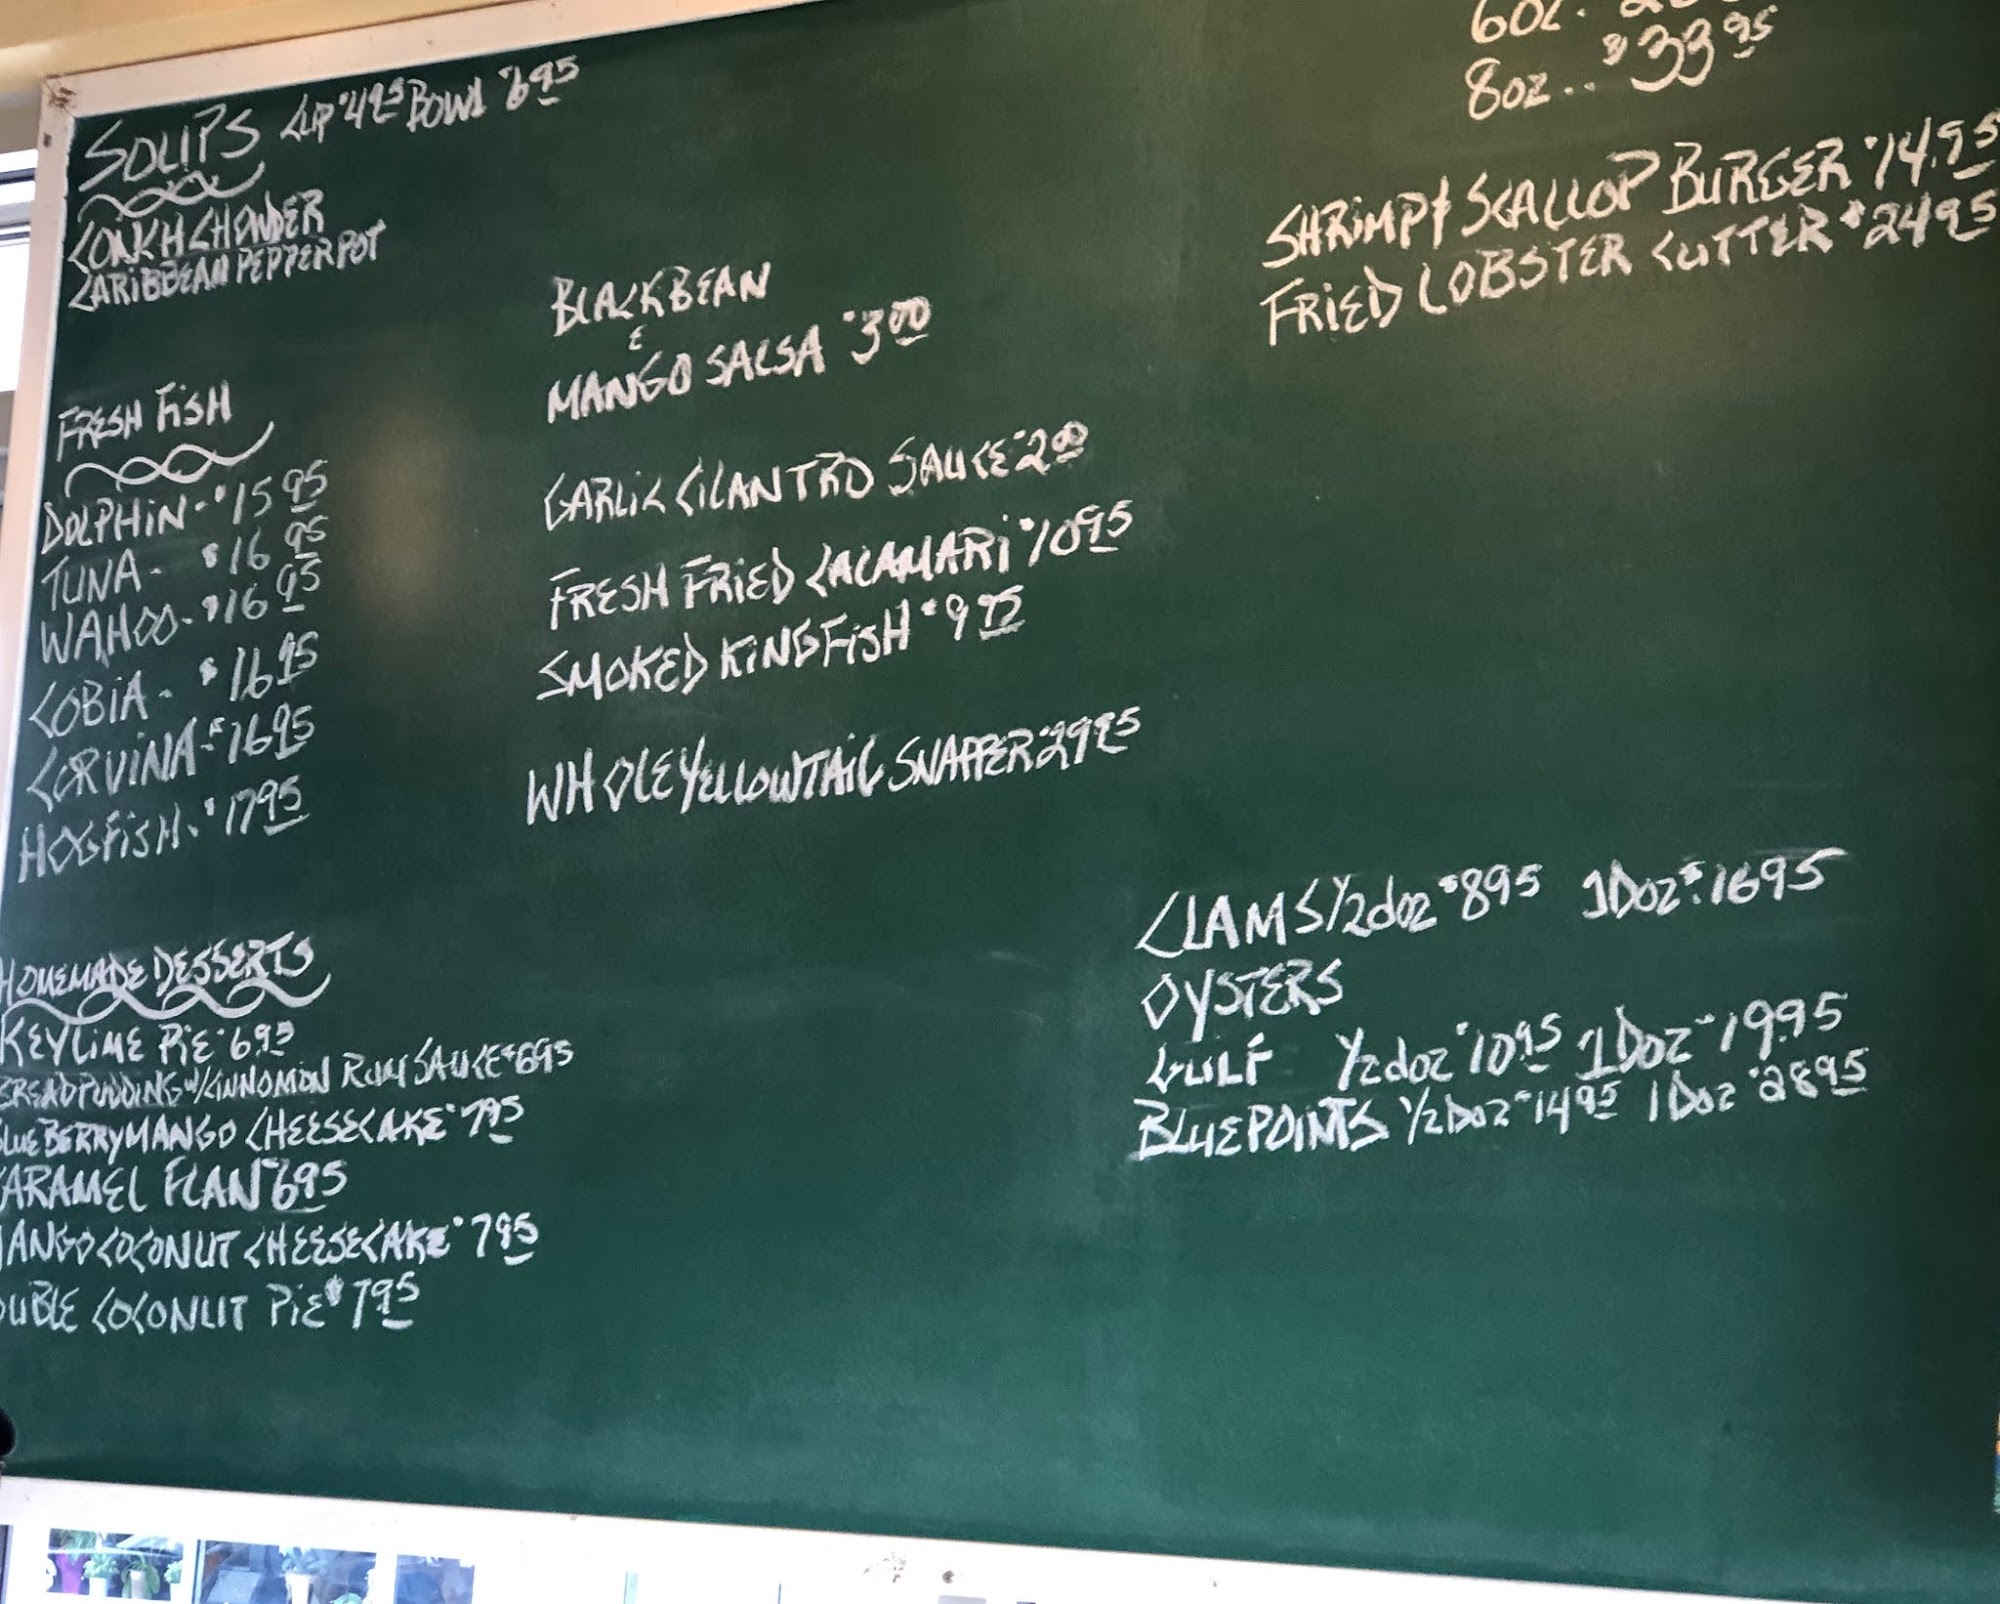 SOUPS CUP $4.95 BOWL $6.95
CONKH CHOWDER
CARIBBEAN PEPPERPOT
FRESH FISH
DOLPHIN - $15.95
TUNA - $16.95
WAHOO - $16.95
COBIA - $16.95
CORVINA - $16.95
HOGFISH - $17.95
HOMEMADE DESSERTS
KEYLIME PIE $6.95
BREADPUDDING W/CINNOMON RUM SAUCE $6.95
BLUEBERRY MANGO CHEESECAKE $7.95
CARAMEL FLAN $6.95
MANGO COCONUT CHEESECAKE $7.95
DOUBLE COCONUT PIE $7.95
BLACKBEAN
&
MANGO SALSA $3.00
GARLIC CILANTRO SAUCE $2.00
FRESH FRIED CALAMARI $10.95
SMOKED KINGFISH $9.95
WHOLE YELLOWTAIL SNAPPER $29.95
6OZ.
8OZ... $33.95
SHRIMP & SCALLOP BURGER $14.95
FRIED LOBSTER CUTTER $24.95
CLAMS 1/2 doz $8.95 1 Doz $16.95
OYSTERS
GULF 1/2 doz $10.95 1 Doz $19.95
BLUEPOINTS 1/2 Doz $14.95 1 Doz $28.95